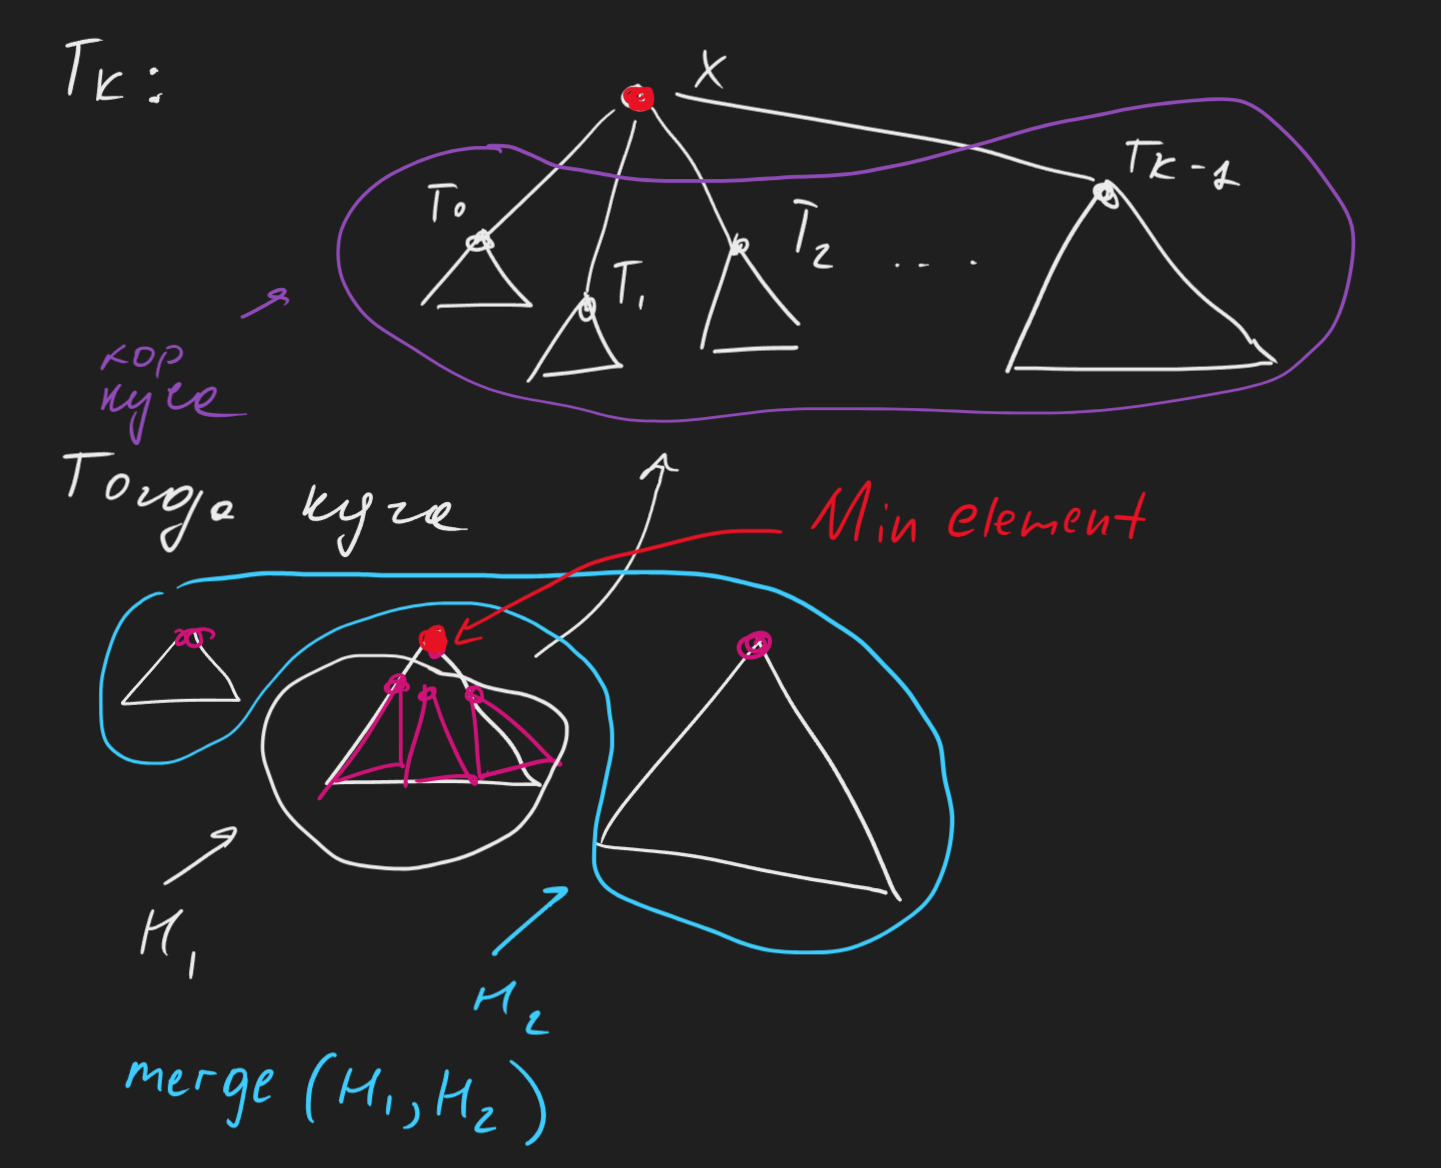 Tк:
X
T₀
T₁
T₂
....
Tк-1
кор
куча
Тогда куча
Min element
H₁
H₂
merge (H₁, H₂)